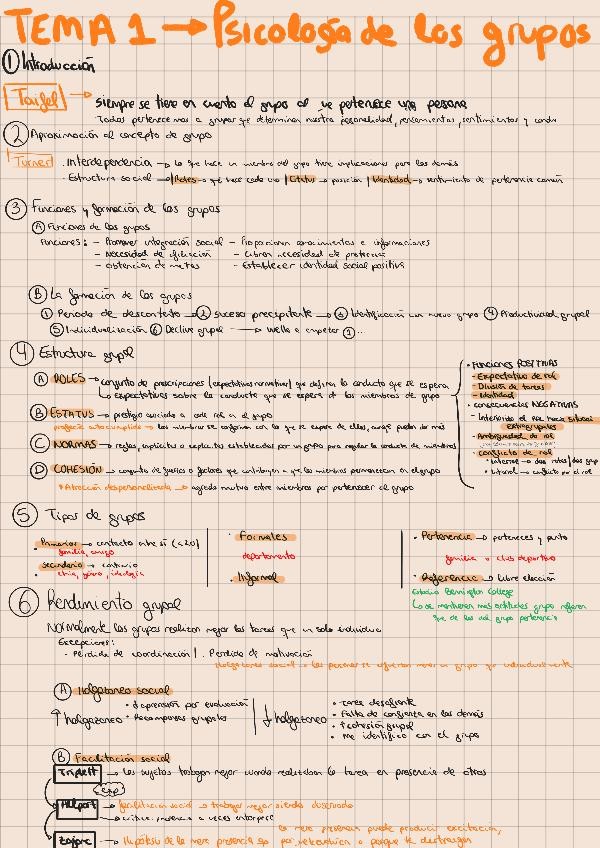 TEMA 1 → Psicología de los grupos
① Introducción
Tajfel → siempre se tiene en cuenta el grupo al que pertenece una persona
Todos pertenecemos a grupos que determinan nuestra personalidad, pensamientos, sentimientos y
② Aproximación al concepto de grupo
Turner · Interdependencia → lo que hace un miembro del grupo tiene implicaciones para los demás
· Estructura social → Roles → qué hace cada uno | Estatus → posición | Identidad → sentimiento de pertenencia común
③ Funciones y formación de los grupos
Ⓐ Funciones de los grupos
Funciones: - Promover integración social - Proporcionar conocimientos e informaciones
- Necesidad de afiliación - Cubren necesidad de
- obtención de metas - Establecer identidad social positiva
Ⓑ La formación de los grupos
① Periodo de descontento → ② suceso precipitante → ③ Identificación con nuevo grupo ④ Productividad grupal
⑤ Individualización ⑥ Declive grupal → vuelta a empezar ①...
④ Estructura grupal
Ⓐ ROLES → conjunto de prescripciones (expectativas normativas) que definen la conducta que se espera
↳ expectativas sobre la conducta que se espera de los miembros de grupo
Ⓑ ESTATUS → prestigio asociado a cada rol en el grupo
profecía autocumplida → los miembros se conforman con lo que se espera de ellos, aunque puedan dar más
Ⓒ NORMAS → reglas, implícitas o explícitas establecidas por un grupo para regular la conducta de miembros
Ⓓ COHESIÓN → conjunto de fuerzas o factores que contribuyen a que los miembros permanezcan en el grupo
* Atracción despersonalizada → agrado mutuo entre miembros por pertenecer al grupo
· Funciones POSITIVAS
- Expectativa de rol
- División de tareas
- Identidad
· consecuencias NEGATIVAS
- Ambigüedad de rol
- conflicto de rol
⑤ Tipos de grupos
· Primarios → contacto entre sí (<20)
familia, amigos
· secundario → contrario
etnia, género, ideología
· Formales
departamento
· Informal
· Pertenencia → perteneces y punto
familia o club deportivo
· Referencia → libre elección
Estudio Bennington College
⑥ Rendimiento grupal
Normalmente los grupos realizan mejor las tareas que un solo individuo
Excepciones:
- Pérdida de coordinación | . Pérdida de motivación
Holgazaneo social → las personas se esfuerzan menos en grupo que individualmente
Ⓐ Holgazaneo social
↑ holgazaneo
· Recompensas grupales
↓ holgazaneo
· tarea desafiante
· Falta de confianza en los demás
· ↑ cohesión grupal
· me identifico con el grupo
Ⓑ Facilitación social
Triplett → los sujetos trabajan mejor cuando realizaban la tarea en presencia de otros
Allport → facilitación social → trabajar mejor siendo observado
Zajonc → Hipótesis de la mera presencia
la mera presencia puede producir excitación,